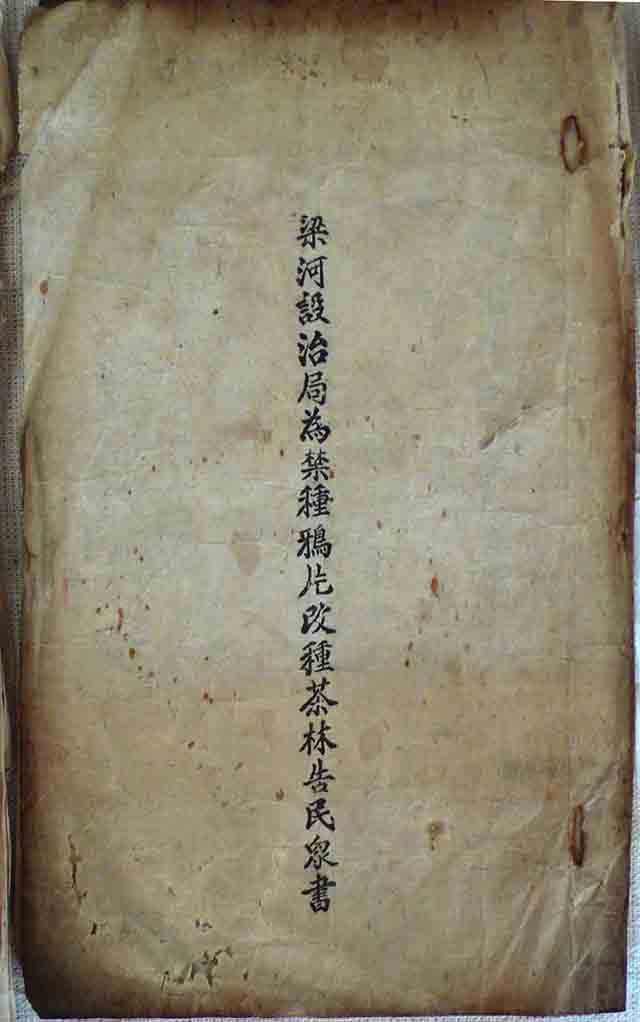 梁河設治局為禁種鴉片改種茶林告民眾書